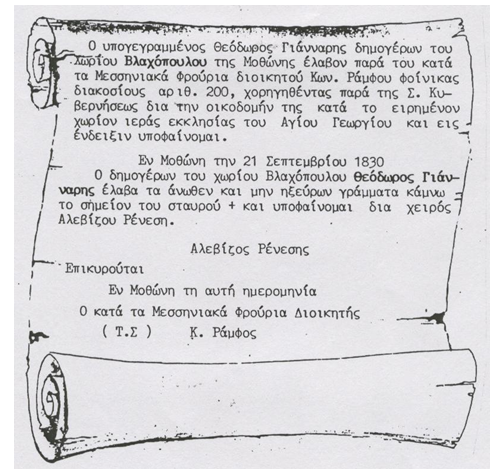 Ο υπογεγραμμένος Θεόδωρος Γιάνναρης δημογέρων του
Χωρίου Βλαχόπουλου της Μοθώνης έλαβον παρά του κατά
τα Μεσσηνιακά Φρούρια διοικητού Κων. Ράμφου φοίνικας
διακοσίους αριθ. 200, χορηγηθέντας παρά της Σ. Κυ-
βερνήσεως δια την οικοδομήν της κατά το ειρημένον
χωρίον ιεράς εκκλησίας του Αγίου Γεωργίου και εις
ένδειξιν υποφαίνομαι.
Εν Μοθώνη την 21 Σεπτεμβρίου 1830
Ο δημογέρων του χωρίου Βλαχόπουλου Θεόδωρος Γιάν-
ναρης έλαβα τα άνωθεν και μην ηξεύρων γράμματα κάμνω
το σημείον του σταυρού + και υποφαίνομαι δια χειρός
Αλεβίζου Ρένεση.
Αλεβίζος Ρένεσης
Επικυρούται
Εν Μοθώνη τη αυτή ημερομηνία
Ο κατά τα Μεσσηνιακά Φρούρια Διοικητής
( Τ.Σ ) Κ. Ράμφος